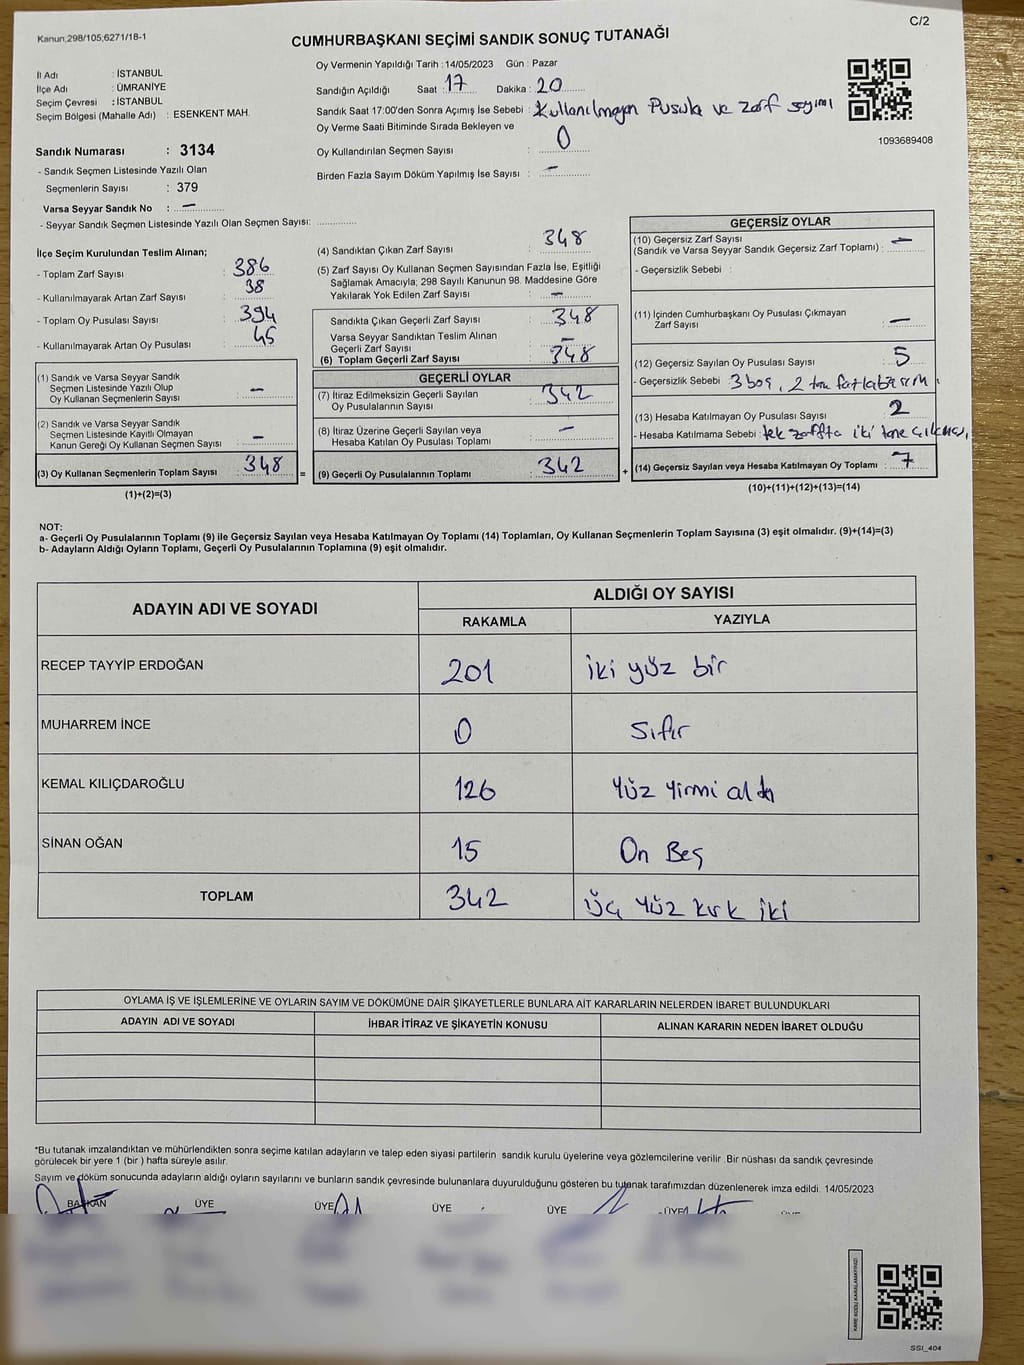 C/2
Kanun;298/105;6271/18-1
CUMHURBAŞKANI SEÇİMİ SANDIK SONUÇ TUTANAĞI
İl Adı : İSTANBUL
İlçe Adı : ÜMRANİYE
Seçim Çevresi : İSTANBUL
Seçim Bölgesi (Mahalle Adı) : ESENKENT MAH.
Sandık Numarası : 3134
- Sandık Seçmen Listesinde Yazılı Olan
Seçmenlerin Sayısı : 379
Varsa Seyyar Sandık No : –
- Seyyar Sandık Seçmen Listesinde Yazılı Olan Seçmen Sayısı: ............
Oy Vermenin Yapıldığı Tarih : 14/05/2023 Gün : Pazar
Sandığın Açıldığı Saat : 17 Dakika : 20
Sandık Saat 17:00'den Sonra Açımış İse Sebebi : Kullanılmayan Pusula ve zarf sayımı
Oy Verme Saati Bitiminde Sırada Bekleyen ve
Oy Kullandırılan Seçmen Sayısı : 0
Birden Fazla Sayım Döküm Yapılmış İse Sayısı : –
1093689408
İlçe Seçim Kurulundan Teslim Alınan;
- Toplam Zarf Sayısı : 386
- Kullanılmayarak Artan Zarf Sayısı : 38
- Toplam Oy Pusulası Sayısı : 394
- Kullanılmayarak Artan Oy Pusulası : 45
(1) Sandık ve Varsa Seyyar Sandık
Seçmen Listesinde Yazılı Olup
Oy Kullanan Seçmenlerin Sayısı : –
(2) Sandık ve Varsa Seyyar Sandık
Seçmen Listesinde Kayıtlı Olmayan
Kanun Gereği Oy Kullanan Seçmen Sayısı : –
(3) Oy Kullanan Seçmenlerin Toplam Sayısı : 348 =
(1)+(2)=(3)
(4) Sandıktan Çıkan Zarf Sayısı : 348
(5) Zarf Sayısı Oy Kullanan Seçmen Sayısından Fazla İse, Eşitliği
Sağlamak Amacıyla; 298 Sayılı Kanunun 98. Maddesine Göre
Yakılarak Yok Edilen Zarf Sayısı : –
Sandıkta Çıkan Geçerli Zarf Sayısı : 348
Varsa Seyyar Sandıktan Teslim Alınan
Geçerli Zarf Sayısı : –
(6) Toplam Geçerli Zarf Sayısı : 348
GEÇERLİ OYLAR
(7) İtiraz Edilmeksizin Geçerli Sayılan
Oy Pusulalarının Sayısı : 342
(8) İtiraz Üzerine Geçerli Sayılan veya
Hesaba Katılan Oy Pusulası Toplamı : –
(9) Geçerli Oy Pusulalarının Toplamı : 342 +
GEÇERSİZ OYLAR
(10) Geçersiz Zarf Sayısı
(Sandık ve Varsa Seyyar Sandık Geçersiz Zarf Toplamı) : –
- Geçersizlik Sebebi :
(11) İçinden Cumhurbaşkanı Oy Pusulası Çıkmayan
Zarf Sayısı : –
(12) Geçersiz Sayılan Oy Pusulası Sayısı : 5
- Geçersizlik Sebebi : 3 boş, 2 fazla
(13) Hesaba Katılmayan Oy Pusulası Sayısı : 2
- Hesaba Katılmama Sebebi: tek zarfta iki tane çıkması.
(14) Geçersiz Sayılan veya Hesaba Katılmayan Oy Toplamı : 7
(10)+(11)+(12)+(13)=(14)
NOT:
a- Geçerli Oy Pusulalarının Toplamı (9) ile Geçersiz Sayılan veya Hesaba Katılmayan Oy Toplamı (14) Toplamları, Oy Kullanan Seçmenlerin Toplam Sayısına (3) eşit olmalıdır. (9)+(14)=(3)
b- Adayların Aldığı Oyların Toplamı, Geçerli Oy Pusulalarının Toplamına (9) eşit olmalıdır.
ADAYIN ADI VE SOYADI ALDIĞI OY SAYISI
RAKAMLA YAZIYLA
RECEP TAYYİP ERDOĞAN 201 iki yüz bir
MUHARREM İNCE 0 Sıfır
KEMAL KILIÇDAROĞLU 126 Yüz Yirmi altı
SİNAN OĞAN 15 On Beş
TOPLAM 342 Üç Yüz kırk iki
OYLAMA İŞ VE İŞLEMLERİNE VE OYLARIN SAYIM VE DÖKÜMÜNE DAİR ŞİKAYETLERLE BUNLARA AİT KARARLARIN NELERDEN İBARET BULUNDUKLARI
ADAYIN ADI VE SOYADI İHBAR İTİRAZ VE ŞİKAYETİN KONUSU ALINAN KARARIN NEDEN İBARET OLDUĞU
*Bu tutanak imzalandıktan ve mühürlendikten sonra seçime katılan adayların ve talep eden siyasi partilerin sandık kurulu üyelerine veya gözlemcilerine verilir .Bir nüshası da sandık çevresinde
görülecek bir yere 1 (bir ) hafta süreyle asılır.
Sayım ve döküm sonucunda adayların aldığı oyların sayılarını ve bunların sandık çevresinde bulunanlara duyurulduğunu gösteren bu tutanak tarafımızdan düzenlenerek imza edildi. 14/05/2023
BAŞKAN ÜYE ÜYE ÜYE ÜYE ÜYE
KARE KODU KARALAMAYINIZ!
SSI_404